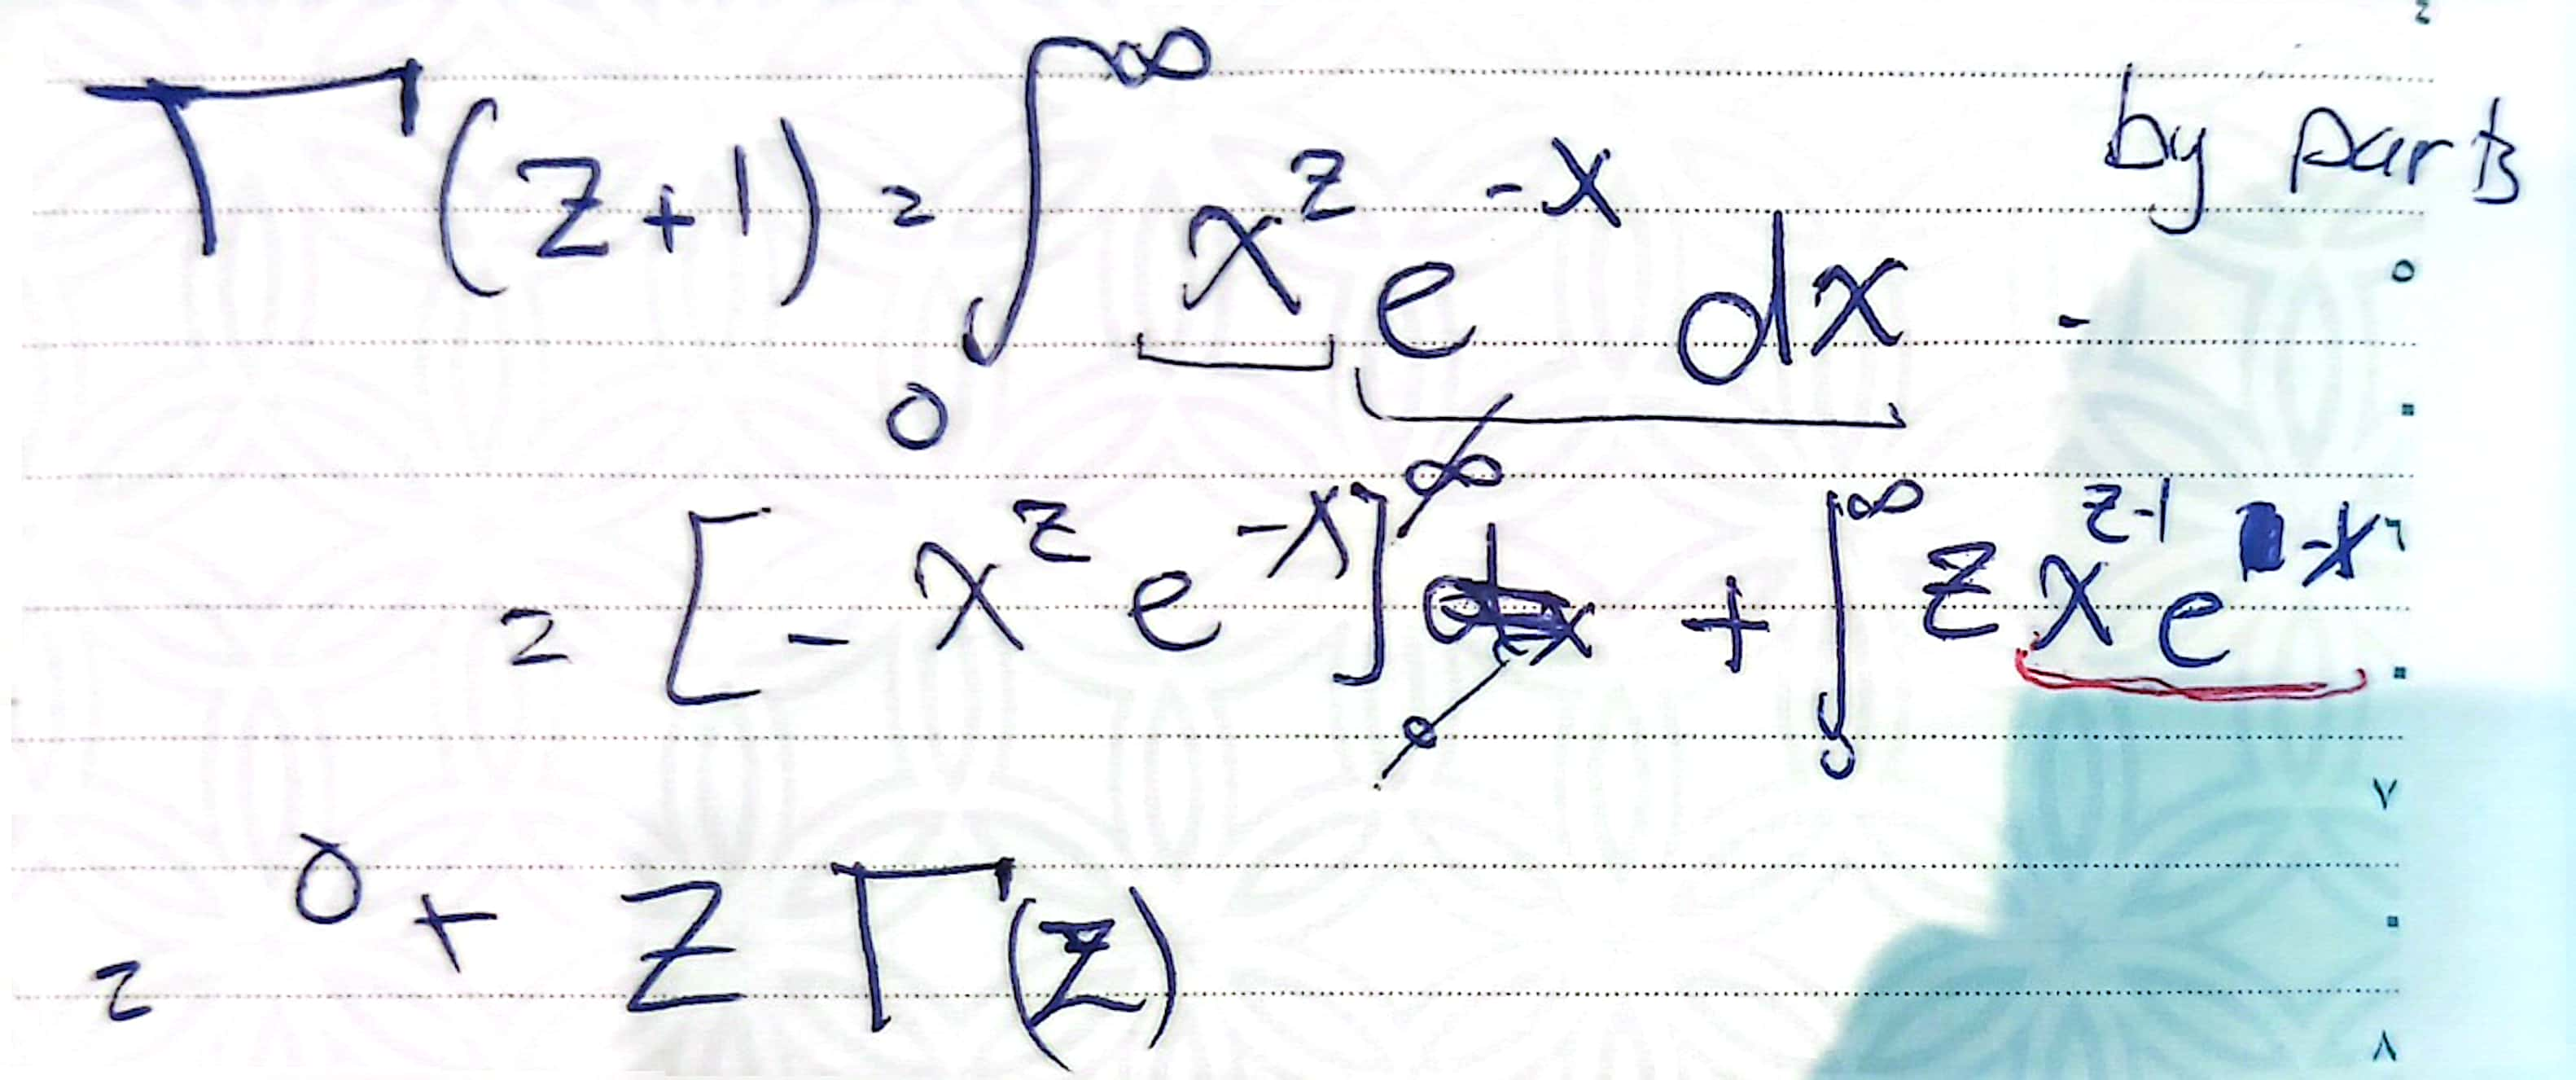 Γ(z+1) = ∫₀^∞ x^z e^-x dx - by parts
= [-x^z e^-x]₀^∞ + ∫₀^∞ z x^z-1 e^-x
= 0 + z Γ(z)
٧
٨